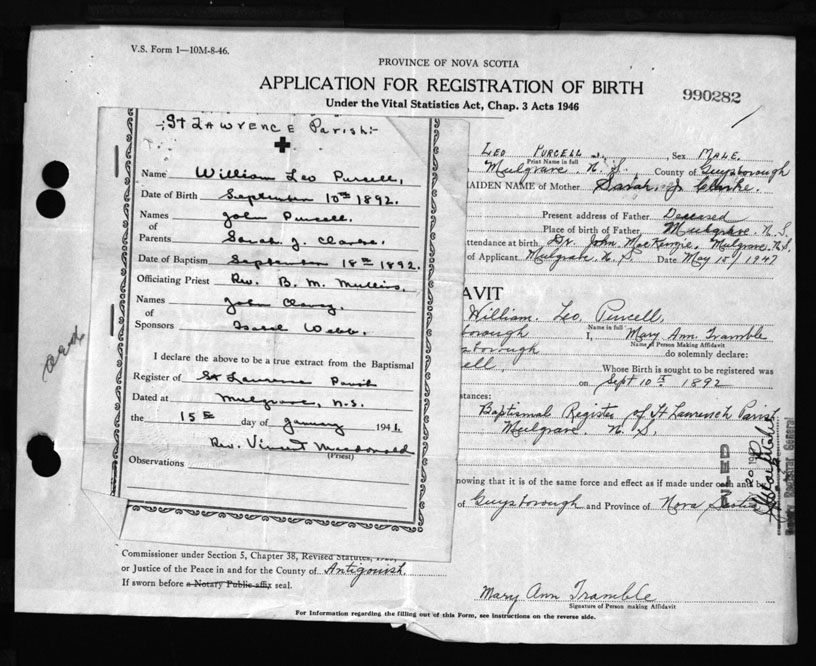 V.S. Form 1—10M-8-46.
PROVINCE OF NOVA SCOTIA
APPLICATION FOR REGISTRATION OF BIRTH
990282
Under the Vital Statistics Act, Chap. 3 Acts 1946
St LAWRENCE Parish
Name William Leo Purcell,
Date of Birth September 10th 1892.
Names John Purcell.
of
Parents Sarah J. Clarke.
Date of Baptism September 18th 1892.
Officiating Priest Rev. B. M. Mullins,
Names John
of
Sponsors Isabel Webb.
I declare the above to be a true extract from the Baptismal
Register of St Lawrence Parish
Dated at Mulgrave, N.S.
the 15th day of January 1941.
Rev. Vincent Macdonald
(Priest)
Observations
LEO PURCELL, Sex MALE.
Print Name in full
Mulgrave. N. S. County of Guysborough
MAIDEN NAME of Mother Sarah. J. Clarke.
Present address of Father Deceased
Place of birth of Father Mulgrave. N. S.
ttendance at birth, Dr. John. MacKenzie, Mulgrave. N.S.
of Applicant Mulgrave. N. S. Date May 15/1947
AVIT
William. Leo. Purcell,
Name in full
borough I, Mary Ann. Tramble
Name of Person Making Affidavit
sborough do solemnly declare:
ell, Whose Birth is sought to be registered was
on Sept 10th 1892
stances:
Baptismal Register of St Lawrence Parish
Mulgrave. N. S.
FILED
Deputy Registrar General
nowing that it is of the same force and effect as if made under oath and by
of Guysborough and Province of Nova Scotia
Commissioner under Section 5, Chapter 38, Revised Statutes,
or Justice of the Peace in and for the County of Antigonish.
If sworn before a Notary Public affix seal.
Mary Ann Tramble
Signature of Person making Affidavit
For Information regarding the filling out of this Form, see instructions on the reverse side.